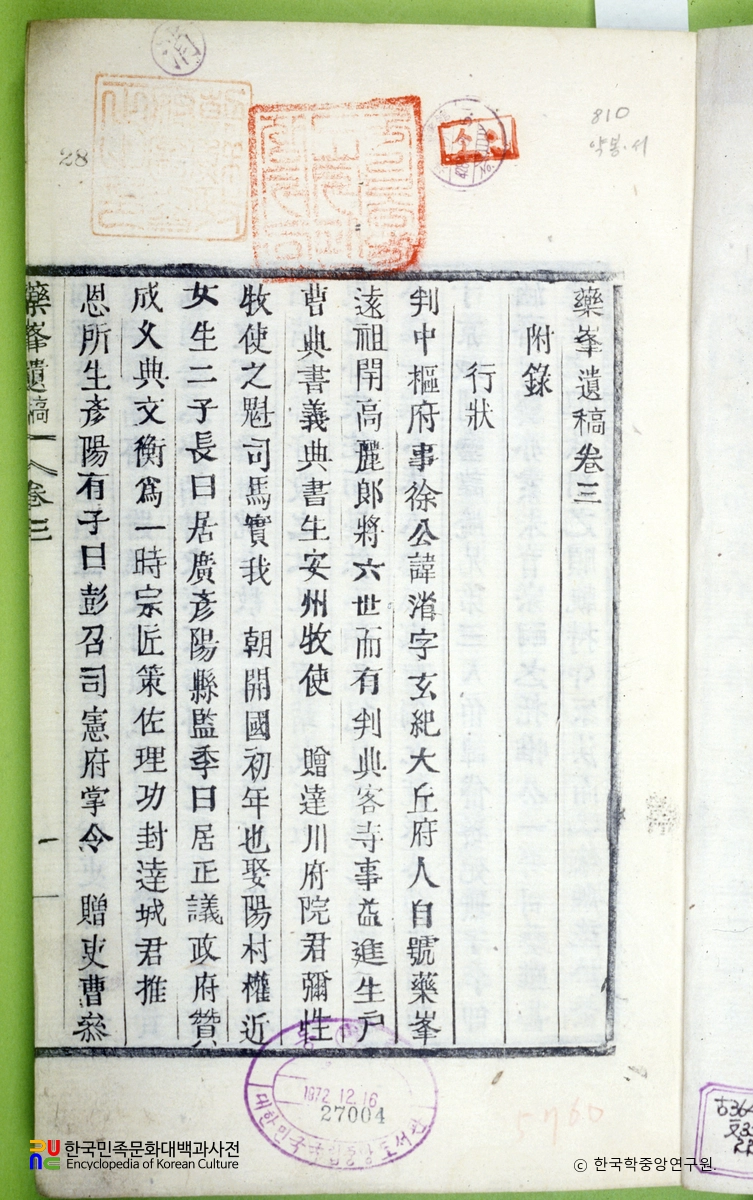 藥峯遺稿卷三
附錄
行狀
判中樞府事徐公諱渻字玄紀大丘府人自號藥峯
遠祖閈高麗郞將六世而有判典客寺事益進生戶
曹典書義典書生安州牧使 贈達川府院君彌性
牧使之尉司馬實我 朝開國初年也娶陽村權近
女生二子長曰居廣彥陽縣監季曰居正議政府贊
成文典文衡爲一時宗匠策佐理功封達城君推
恩所生彥陽有子曰彭召司憲府掌令 贈吏曹叅
藥峯遺稿 卷三 一
28
810
약봉.서
1972.12.16
27004
5760
古364
한국민족문화대백과사전
Encyclopedia of Korean Culture
ⓒ 한국학중앙연구원.